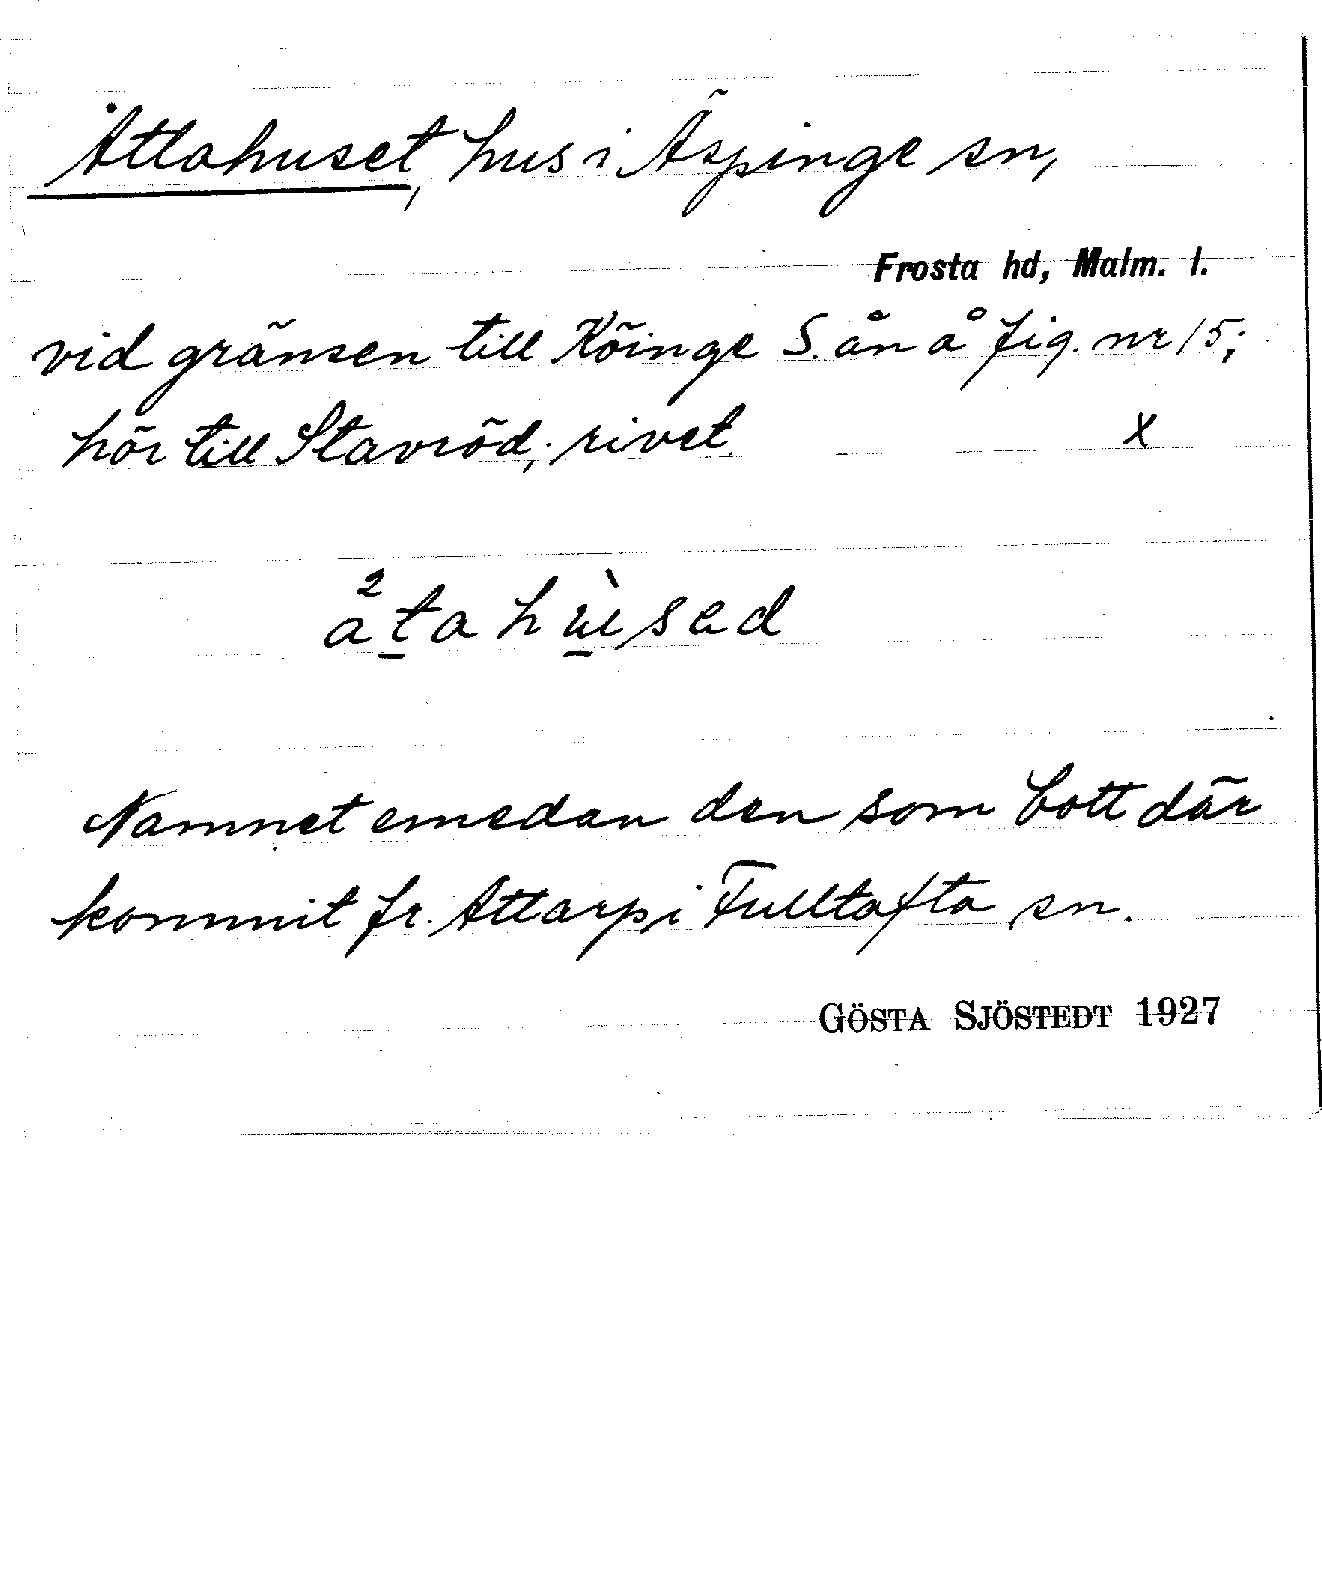 Attahuset, hus i Äspinge sn,
Frosta hd, Malm. l.
vid gränsen till Köinge S. ån å fig. nr 15;
hör till Stavröd; rivet.
x
Namnet emedan den som bott där
kommit fr. Attarp i Fulltofta sn.
GÖSTA SJÖSTEDT 1927